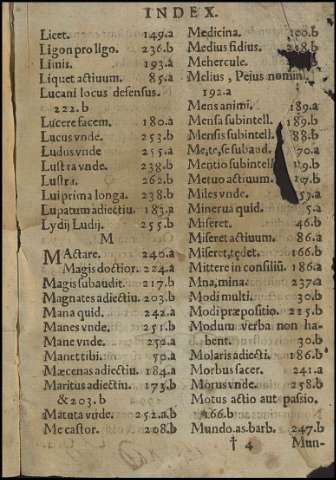 INDEX.
Licet. 149.a
Ligon pro ligo. 236.b
Limis. 193.a
Liquet actiuum. 85.a
Lucani locus defensus.
222.b
Lucere facem. 180.a
Lucus vnde. 253.b
Ludus vnde 255.a
Lustra vnde. 238.b
Lustra. 262.b
Lui prima longa. 238.b
Lupatum adiectiu. 183.a
Lydij Ludij. 255.b
M
MActare. 240.a
Magis doctior. 224.a
Magis subaudit. 217.b
Magnates adiectiu. 203.b
Mana quid. 242.a
Manes vnde. 251.b
Mane vnde. 250.a
Manet tibi. 50.a
Mæcenas adiectiu. 184.a
Maritus adiectiu. 173.b
& 203.b
Matuta vnde. 252.a.b
Me castor. 208.b
Medicina. 100.b
Medius fidius. .b
Mehercule.
Melius, Peius nomin.
192.a
Mens animi. 189.a
Mensa subintell. 189.b
Mensis subintell. 88.b
Me, te, se subaud. 70.a
Mentio subintell. 9.b
Metuo actiuum. .b
Miles vnde. 53.a
Minerua quid. 5.a
Miseret. 46.b
Miseret actiuum. 86.a
Miseret, tędet. 166.b
Mittere in consiliū. 186.a
Mna, mina. 237.a
Modi multi. 30.b
Modi præpositio. 215.b
Modum verba non ha-
bent. 30.b
Molaris adiecti. 186.b
Morbus sacer. 241.a
Morus vnde. 258.b
Motus actio aut passio.
166.b
Mundo. as. barb. 247.b
† 4 Mun-